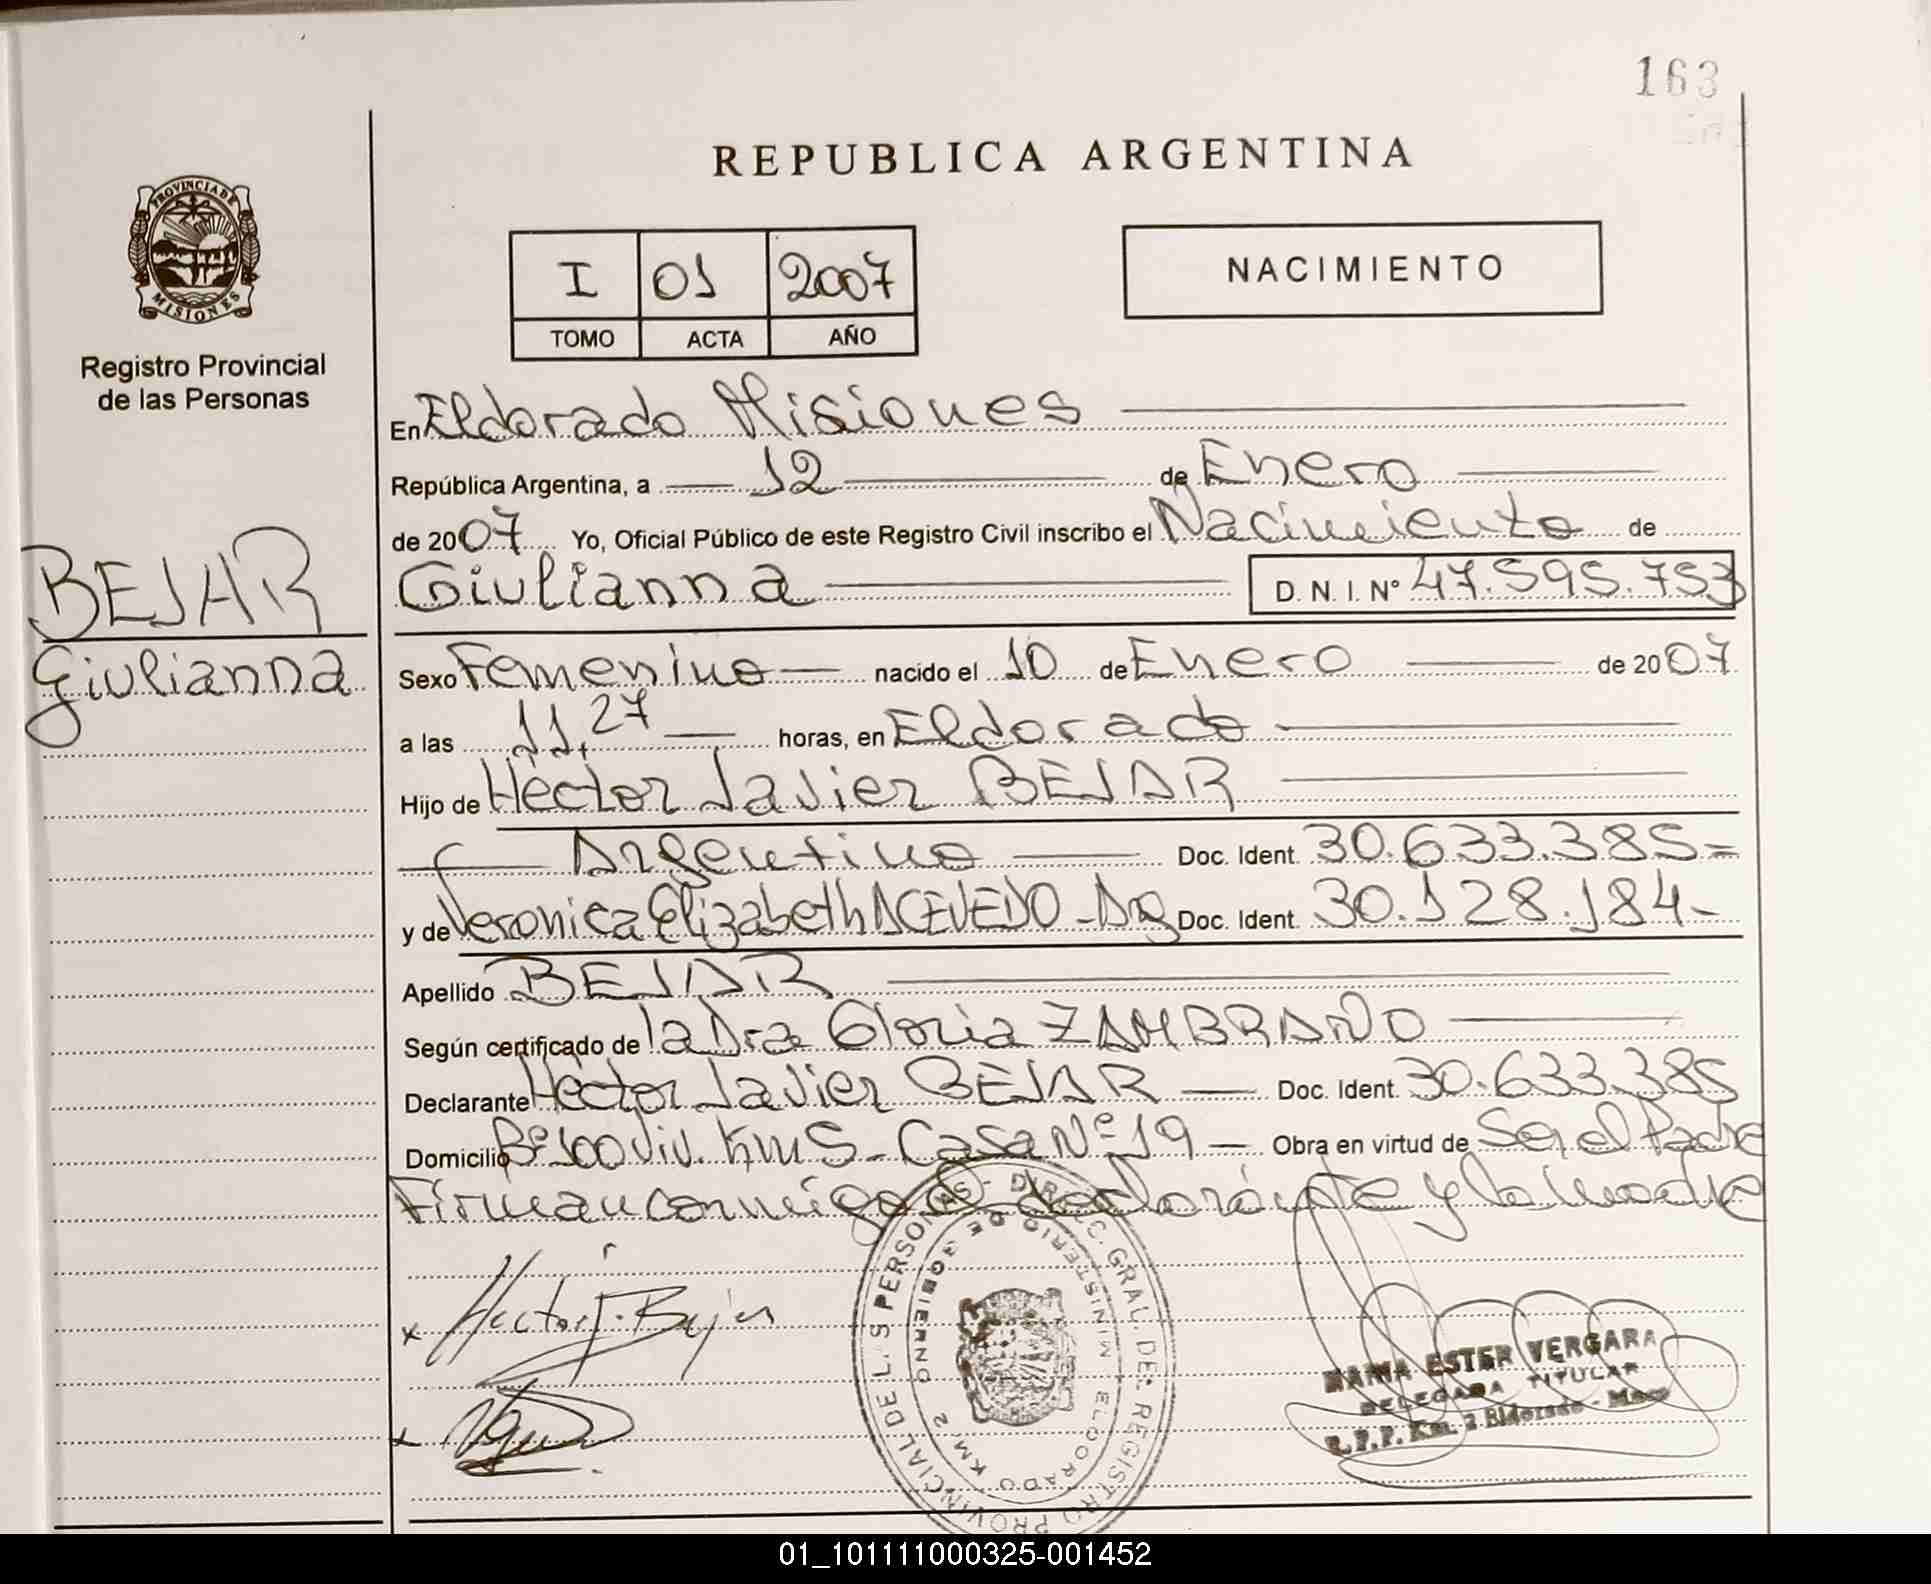 163
REPUBLICA ARGENTINA
PROVINCIA DE MISIONES
Registro Provincial
de las Personas
I 01 2007
TOMO ACTA AÑO
NACIMIENTO
En Eldorado Misiones
República Argentina, a 12 de Enero
de 2007 Yo, Oficial Público de este Registro Civil inscribo el Nacimiento de
BEJAR
Giulianna D. N. I. Nº 47.595.753
Giulianna
Sexo Femenino nacido el 10 de Enero de 2007
a las 11,27 horas, en Eldorado
Hijo de Héctor Javier BEJAR
Argentino Doc. Ident. 30.633.385=
y de Veronica Elizabeth ACEVEDO - Arg Doc. Ident. 30.128.184-
Apellido BEJAR
Según certificado de la Dra Gloria ZAMBRANO
Declarante Héctor Javier BEJAR Doc. Ident. 30.633.385
Domicilio Bº 100 Viv. Km 5 - Casa Nº 19 Obra en virtud de Ser el Padre
Firman conmigo el declarante y la madre
x Hector J. Bejar
x
PROVINCIAL DE L.S PERSONAS - DIRECC. GRAL. DEL REGISTRO
MINISTERIO DE GOBIERNO
ELDORADO KM 2
MARIA ESTER VERGARA
DELEGADA TITULAR
R.P.P. Km. 2 Eldorado - Mnes
01_101111000325-001452